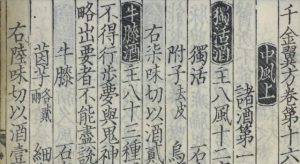 千金翼方卷第十六
中風上
諸酒第一
獨活酒主八風十二
獨活 石
附子去皮 烏
右柒味切以酒貳
牛膝酒主八十三種
不得行步夢與鬼神
略出要者不能盡說
牛膝 石
茵芋各貳兩 細
右陸味切以酒壹